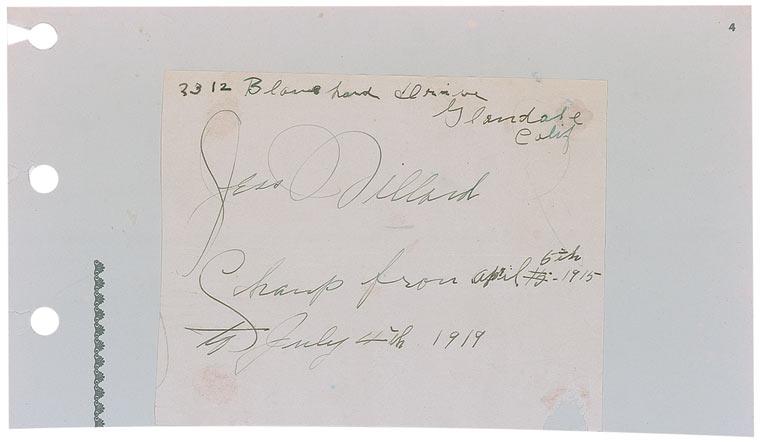 4
3312 Blanchard Drive
Glendale
Calif
Jess Willard
6th
Champ from april 15 - 1915
to July 4th 1919